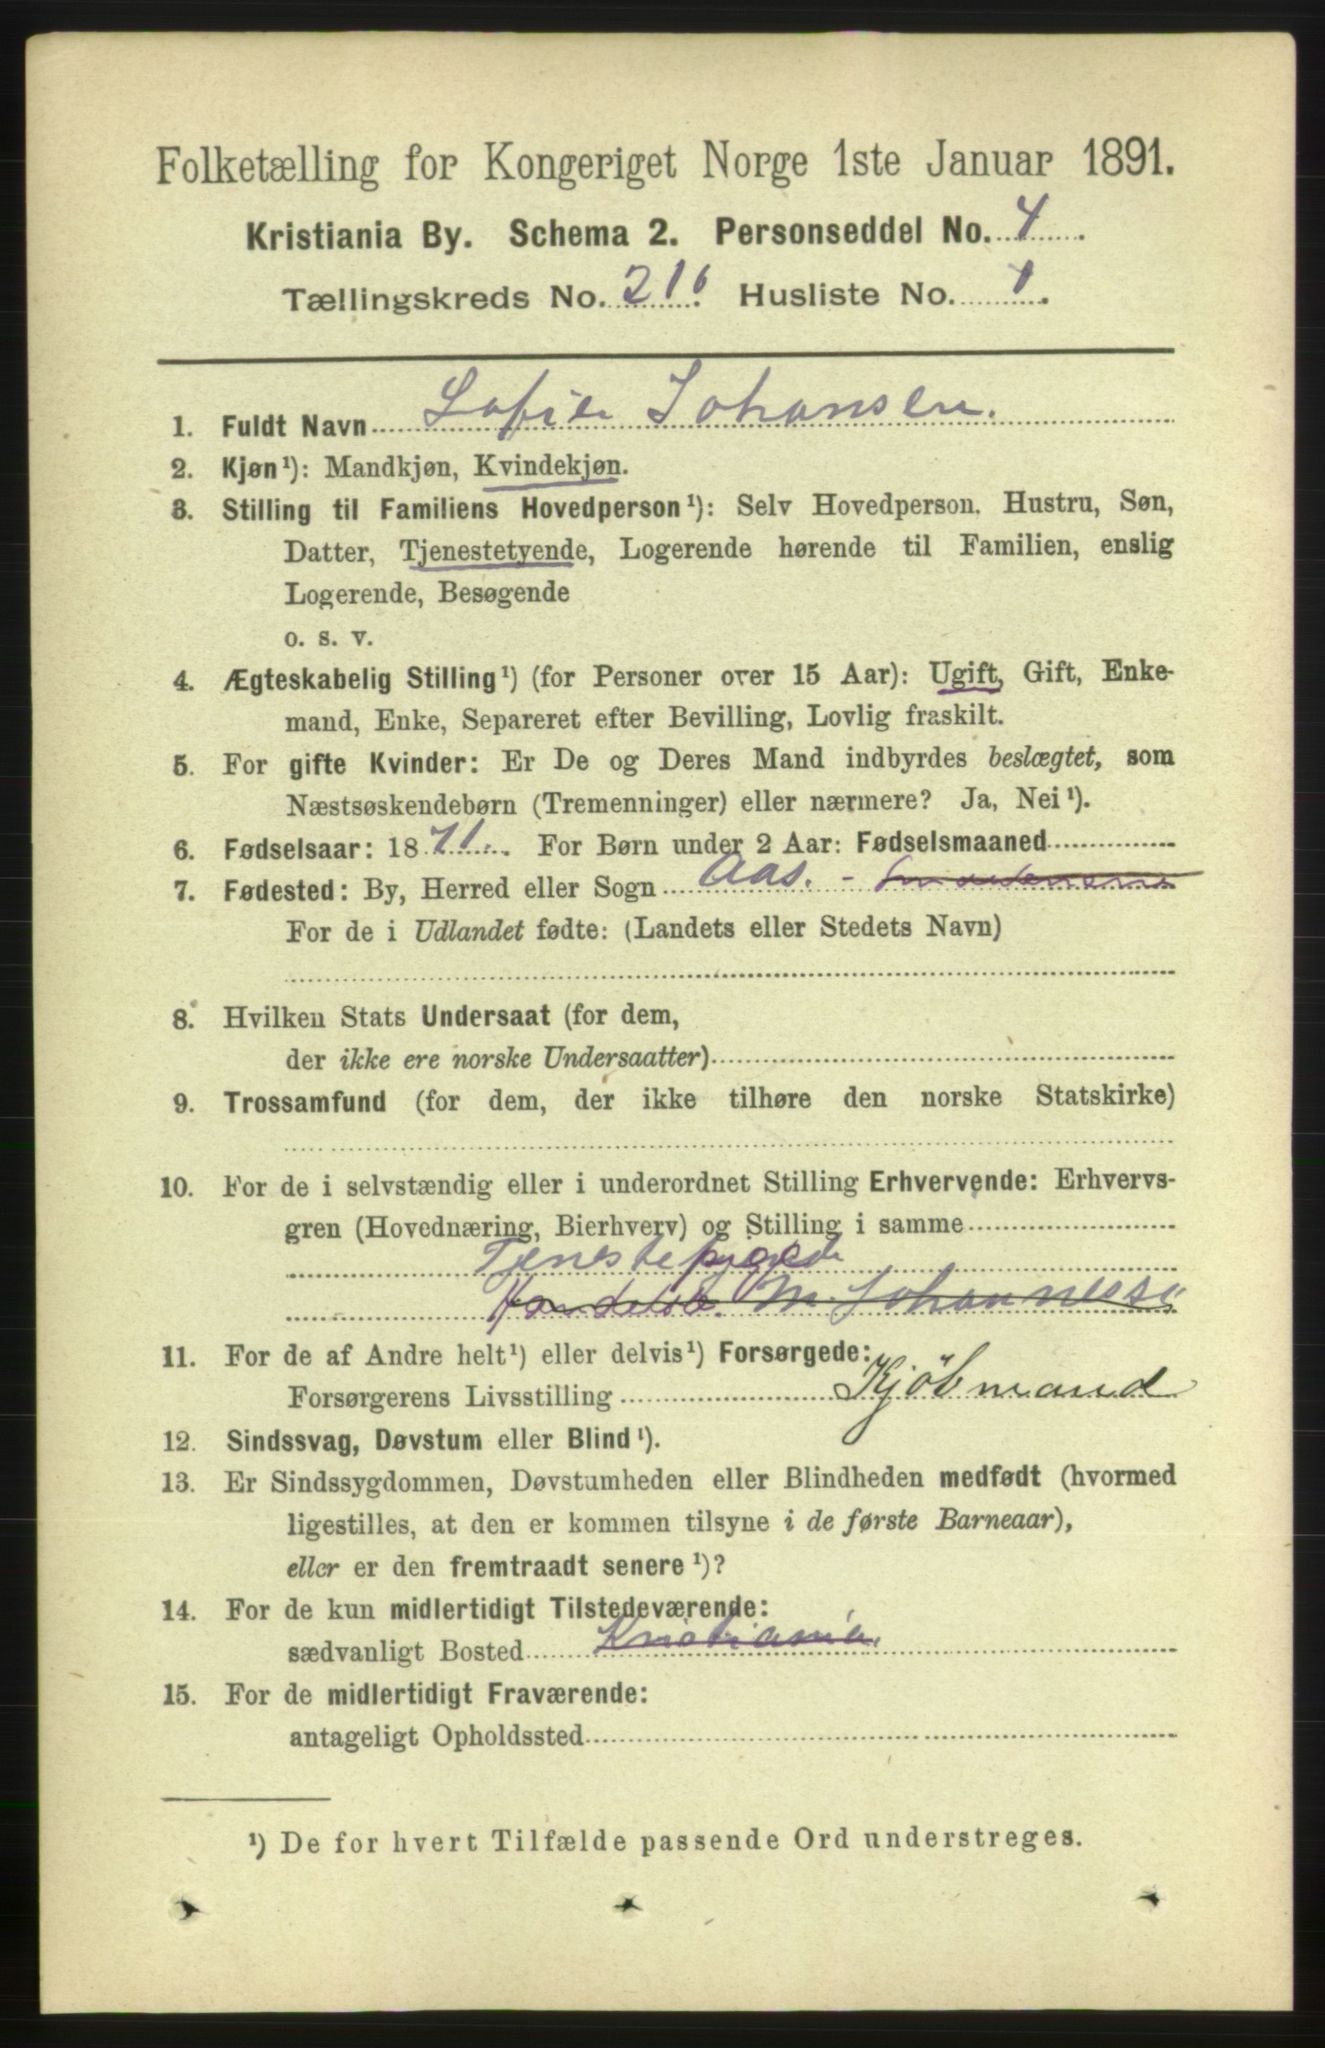 Folketælling for Kongeriget Norge 1ste Januar 1891.
Kristiania By. Schema 2. Personseddel No. 4
Tællingskreds No. 216. Husliste No. 1.
1. Fuldt Navn Sofie Johansen.
2. Kjøn¹): Mandkjøn, Kvindekjøn.
3. Stilling til Familiens Hovedperson¹): Selv Hovedperson. Hustru, Søn,
Datter, Tjenestetyende, Logerende hørende til Familien, enslig
Logerende, Besøgende
o. s. v.
4. Ægteskabelig Stilling¹) (for Personer over 15 Aar): Ugift, Gift, Enke-
mand, Enke, Separeret efter Bevilling, Lovlig fraskilt.
5. For gifte Kvinder: Er De og Deres Mand indbyrdes beslægtet, som
Næstsøskendebørn (Tremenninger) eller nærmere? Ja, Nei¹).
6. Fødselsaar: 1871. For Børn under 2 Aar: Fødselsmaaned
7. Fødested: By, Herred eller Sogn Aas. -
For de i Udlandet fødte: (Landets eller Stedets Navn)
8. Hvilken Stats Undersaat (for dem,
der ikke ere norske Undersaatter)
9. Trossamfund (for dem, der ikke tilhøre den norske Statskirke)
10. For de i selvstændig eller i underordnet Stilling Erhvervende: Erhvervs-
gren (Hovednæring, Bierhverv) og Stilling i samme
Tjenestepige
M. Johannesse
11. For de af Andre helt¹) eller delvis¹) Forsørgede:
Forsørgerens Livsstilling Kjøbmand
12. Sindssvag, Døvstum eller Blind¹).
13. Er Sindssygdommen, Døvstumheden eller Blindheden medfødt (hvormed
ligestilles, at den er kommen tilsyne i de første Barneaar),
eller er den fremtraadt senere¹)?
14. For de kun midlertidigt Tilstedeværende:
sædvanligt Bosted Kristiania.
15. For de midlertidigt Fraværende:
antageligt Opholdssted
¹) De for hvert Tilfælde passende Ord understreges.